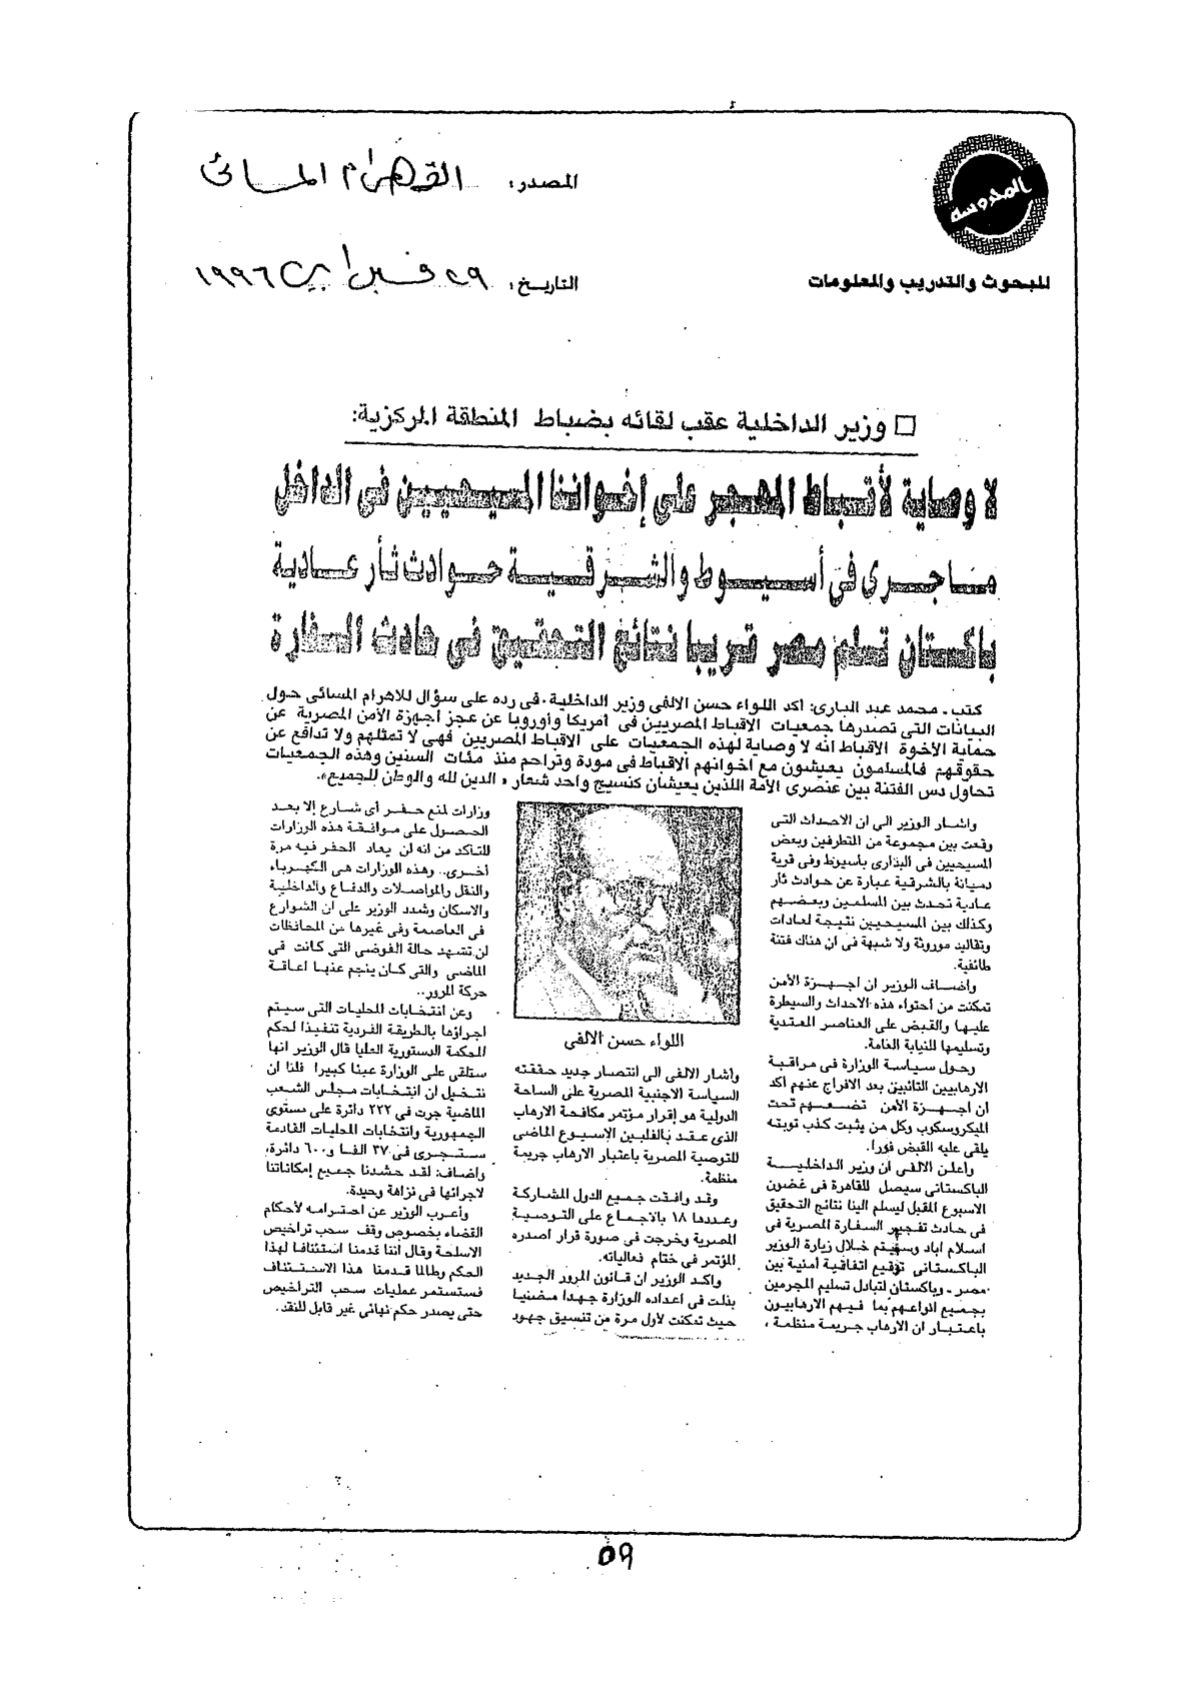 المحروسة
للبحوث والتدريب والمعلومات
المصدر: الاهرام المسائى
التاريخ: ٢٩ فبراير ١٩٩٦
وزير الداخلية عقب لقائه بضباط المنطقة المركزية:
لا وصاية لأقباط المهجر على إخواننا المسيحيين فى الداخل
ماجرى فى أسيوط والشرقية حوادث ثأر عادية
باكستان تسلم مصر قريبا نتائج التحقيق فى حادث السفارة
كتب ـ محمد عبد البارى: أكد اللواء حسن الالفى وزير الداخلية، فى رده على سؤال للاهرام المسائى حول
البيانات التى تصدرها جمعيات الاقباط المصريين فى أمريكا وأوروبا عن عجز اجهزة الأمن المصرية عن
حماية الأخوة الاقباط انه لا وصاية لهذه الجمعيات على الاقباط المصريين فهى لا تمثلهم ولا تدافع عن
حقوقهم فالمسلمون يعيشون مع اخوانهم الاقباط فى مودة وتراحم منذ مئات السنين وهذه الجمعيات
تحاول دس الفتنة بين عنصرى الأمة اللذين يعيشان كنسيج واحد شعار «الدين لله والوطن للجميع».
واشار الوزير الى ان الاحداث التى
وقعت بين مجموعة من المتطرفين وبعض
المسيحيين فى البدارى باسيوط وفى قرية
دميانة بالشرقية عبارة عن حوادث ثأر
عادية تحدث بين المسلمين وبعضهم
وكذلك بين المسيحيين نتيجة لعادات
وتقاليد موروثة ولا شبهة فى ان هناك فتنة
طائفية.
واضاف الوزير ان اجهزة الأمن
تمكنت من أحتواء هذه الاحداث والسيطرة
عليها والقبض على العناصر المعتدية
وتسليمها للنيابة العامة.
وحول سياسة الوزارة فى مراقبة
الارهابيين التائبين بعد الافراج عنهم اكد
أن أجهزة الأمن تضعهم تحت
الميكروسكوب وكل من يثبت كذب توبته
يلقى عليه القبض فورا.
وأعلن الالفى أن وزير الداخلية
الباكستانى سيصل للقاهرة فى غضون
الاسبوع المقبل ليسلم الينا نتائج التحقيق
فى حادث تفجير السفارة المصرية فى
اسلام اباد وسيتم خلال زيارة الوزير
الباكستانى توقيع اتفاقية أمنية بين
مصر ـ وباكستان لتبادل تسليم المجرمين
بجميع انواعهم بما فيهم الارهابيون
باعتبار ان الارهاب جريمة منظمة،
اللواء حسن الالفى
وأشار الالفى الى انتصار جديد حققته
السياسة الاجنبية المصرية على الساحة
الدولية هو إقرار مؤتمر مكافحة الارهاب
الذى عقد بالفلبين الاسبوع الماضى
للتوصية المصرية باعتبار الارهاب جريمة
منظمة.
وقد وافقت جميع الدول المشاركة
وعددها ١٨ بالاجماع على التوصية
المصرية وخرجت فى صورة قرار أصدره
المؤتمر فى ختام فعالياته.
واكد الوزير ان قانون المرور الجديد
بذلت فى اعداده الوزارة جهدا مضنيا
حيث تمكنت لأول مرة من تنسيق جهود
وزارات لمنع حفر أى شارع إلا بعد
الحصول على موافقة هذه الوزارات
للتأكد من انه لن يعاد الحفر فيه مرة
أخرى.. وهذه الوزارات هى الكهرباء
والنقل والمواصلات والدفاع والداخلية
والاسكان وشدد الوزير على ان الشوارع
فى العاصمة وفى غيرها من المحافظات
لن تشهد حالة الفوضى التى كانت فى
الماضى والتى كان ينجم عنها اعاقة
حركة المرور..
وعن انتخابات المحليات التى سيتم
اجراؤها بالطريقة الفردية تنفيذا لحكم
المحكمة الدستورية العليا قال الوزير انها
ستلقى على الوزارة عبئا كبيرا فلنا ان
نتخيل ان انتخابات مجلس الشعب
الماضية جرت فى ٢٢٢ دائرة على مستوى
الجمهورية وانتخابات المحليات القادمة
ستجرى فى ٣٧ الفا و٦٠٠ دائرة،
واضاف: لقد حشدنا جميع إمكاناتنا
لاجرائها فى نزاهة وحيدة.
وأعرب الوزير عن احترامه لأحكام
القضاء بخصوص وقف سحب تراخيص
الاسلحة وقال اننا قدمنا استئنافا لهذا
الحكم وطالما قدمنا هذا الاستئناف
فستستمر عمليات سحب التراخيص
حتى يصدر حكم نهائى غير قابل للنقد.
٥٩